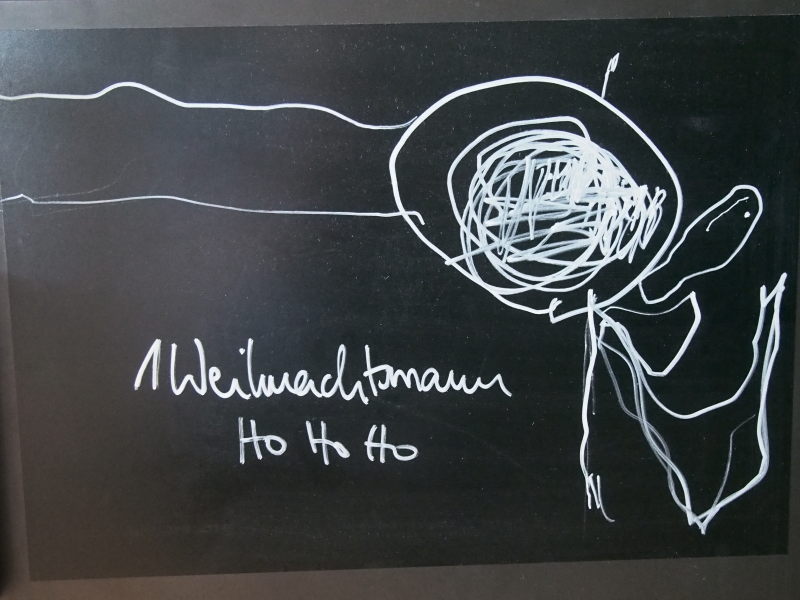 1 Weihnachtsmann
Ho Ho Ho